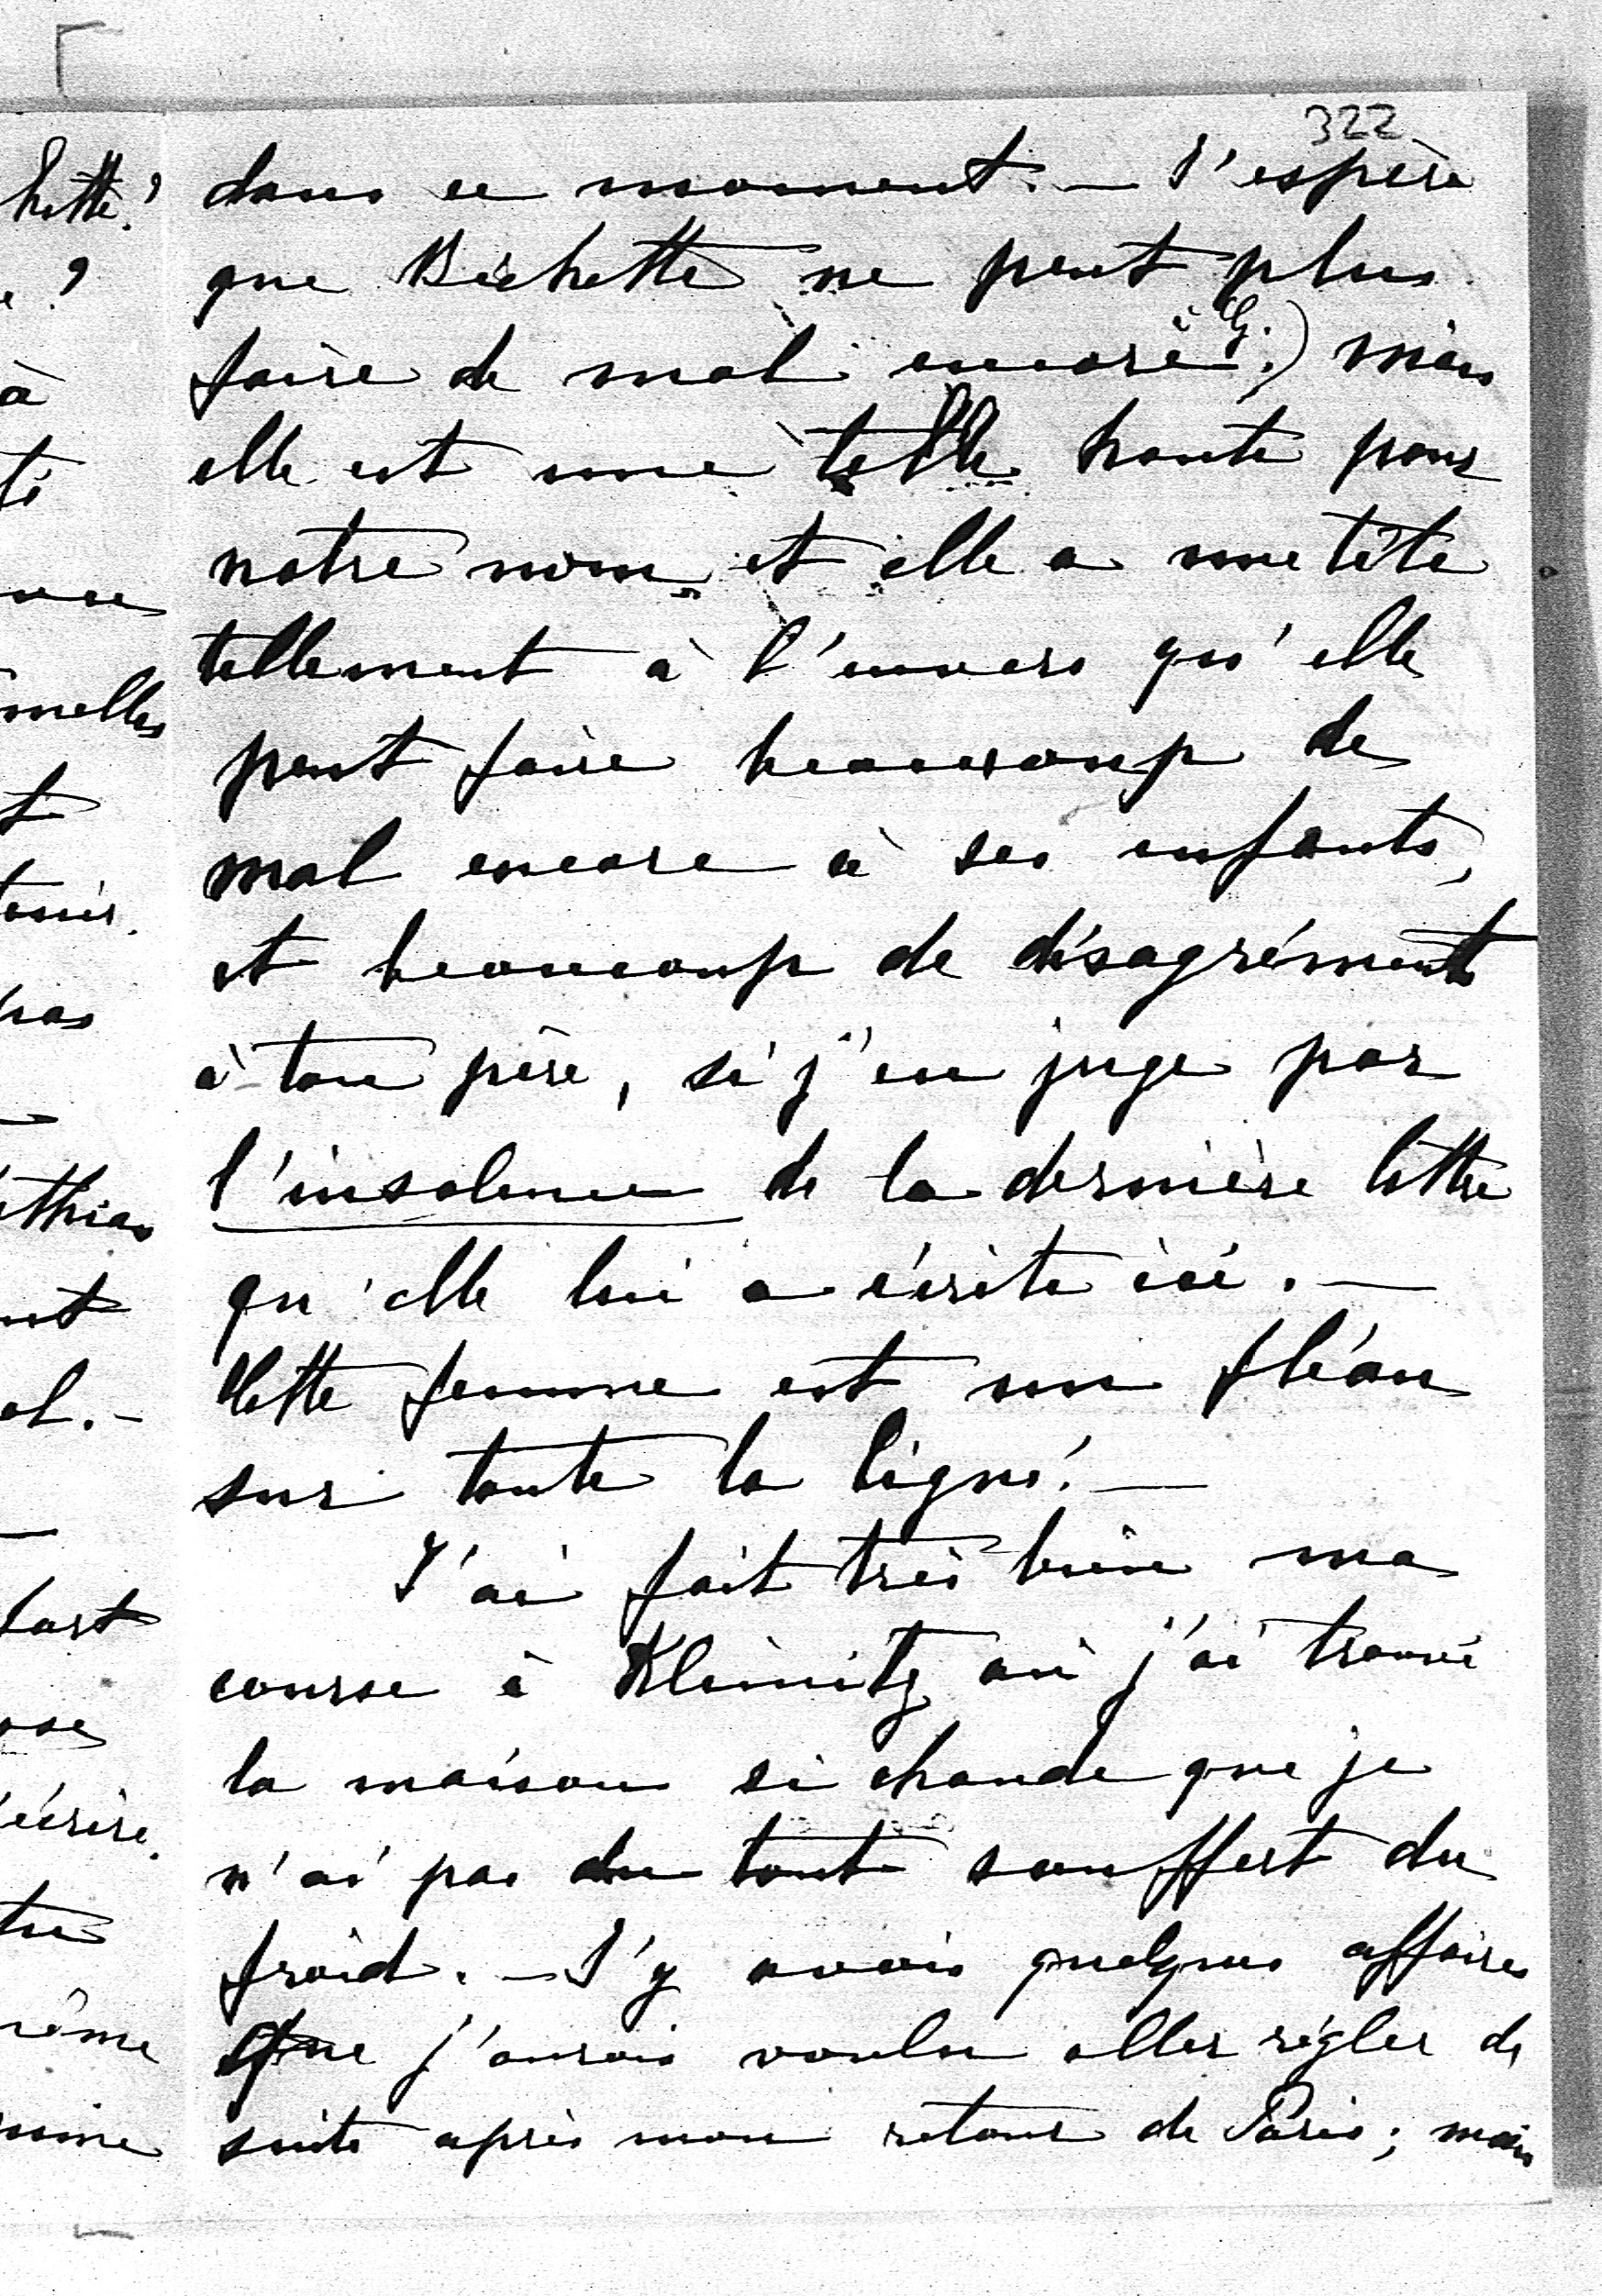 322
dans ce moment. — J'espère
que Bichette ne peut plus
faire de mal encore à G.) mais
elle est une telle honte pour
notre nom et elle a une tête
tellement à l'envers qu'elle
peut faire beaucoup de
mal encore à ses enfants,
et beaucoup de désagréments
à ton père, si j'en juge par
l'insolence de la dernière lettre
qu'elle lui a écrite ici. —
Cette femme est un fléau
sur toute la ligne! —
J'ai fait très bien ma
course à Klemitz où j'ai trouvé
la maison si chaude que je
n'ai pas du tout souffert du
froid. — J'y avais quelques affaires
que j'aurais voulu aller régler de
suite après mon retour de Paris; mais